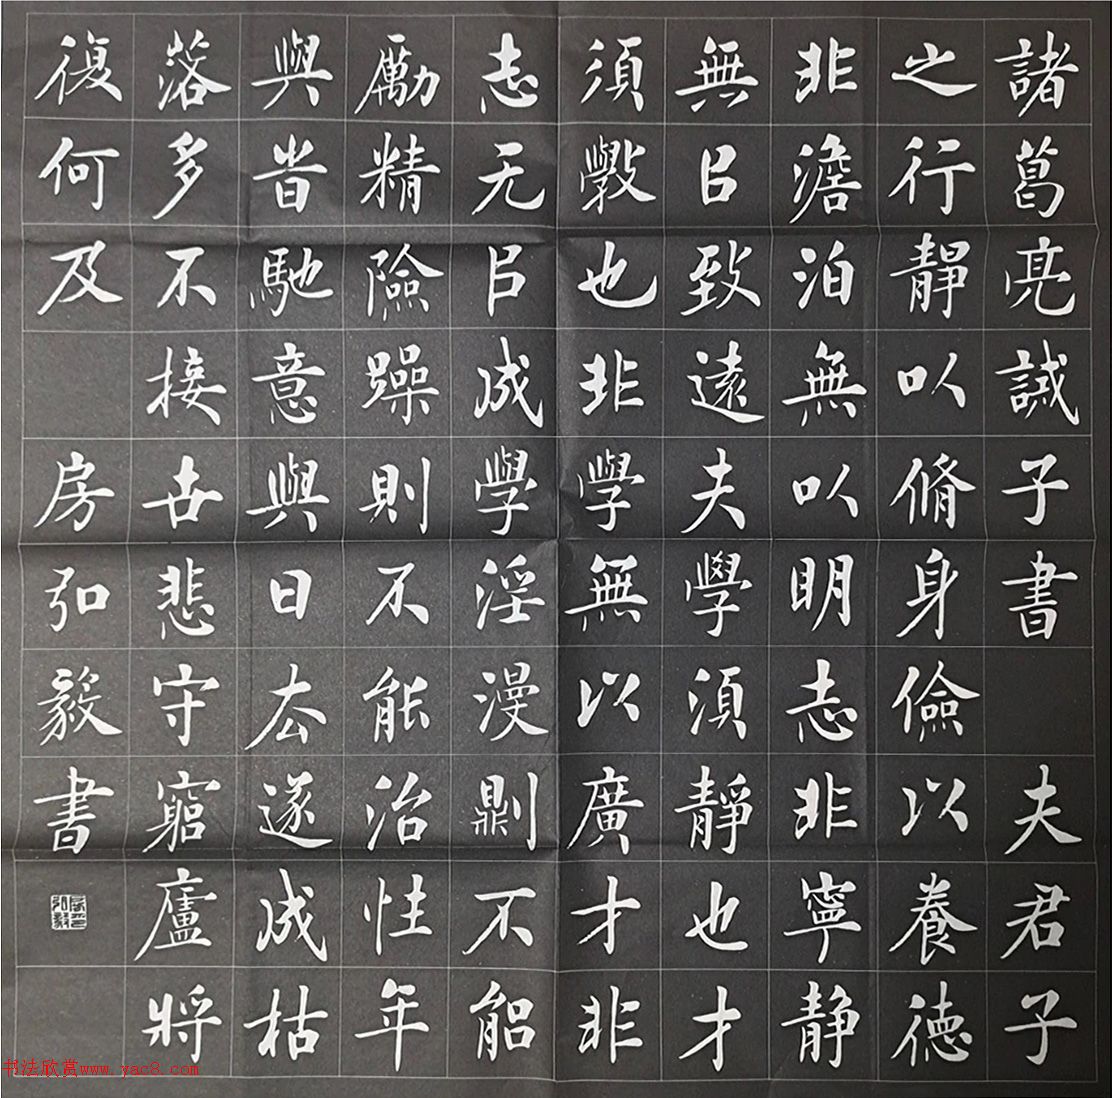 諸葛亮誡子書 夫君子
之行靜以脩身儉以養德
非澹泊無以明志非寧静
無㠯致遠夫學須靜也才
須斆也非學無以廣才非
志无㠯成學淫漫則不能
勵精險躁則不能治性年
與旹馳意與日去遂成枯
落多不接世悲守窮廬將
復何及 房弘毅書
书法欣赏www.yac8.com